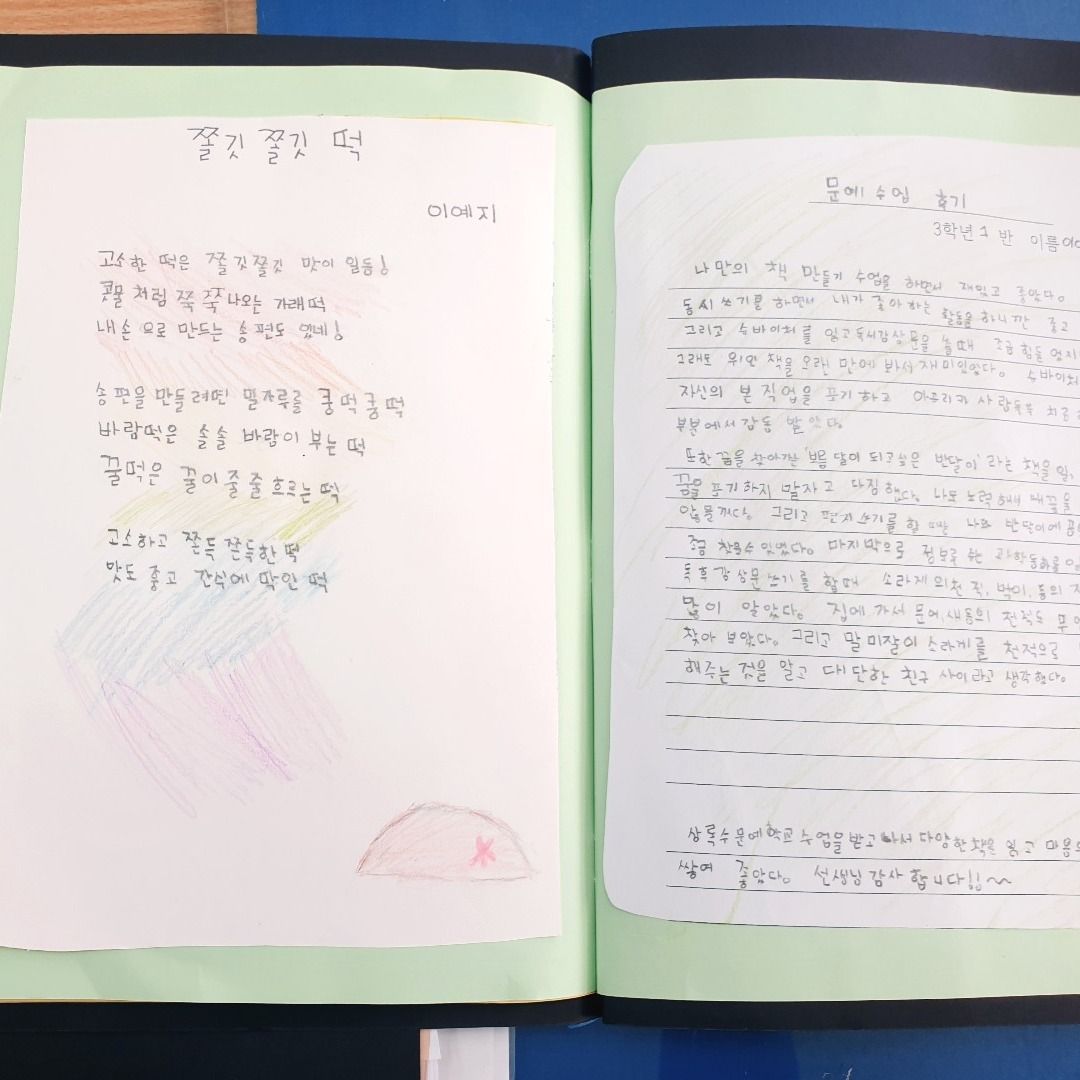 쫄깃 쫄깃 떡
이예지
고소한 떡은 쫄깃쫄깃 맛이 일등!
콧물처럼 쭉 쭉 나오는 가래떡
내 손으로 만드는 송편도 있네!
송편을 만들려면 밀가루를 쿵떡쿵떡
바람떡은 솔솔 바람이 부는 떡
꿀떡은 꿀이 줄줄 흐르는 떡
고소하고 쫀득쫀득한 떡
맛도 좋고 간식에 딱인 떡
문예 수업 후기
3학년 1 반 이름
나만의 책 만들기 수업을 하면서 재밌고 좋았다.
동시 쓰기를 하면서 내가 좋아하는 활동을 하니깐 좋고
그리고 슈바이처를 읽고 독서감상문을 쓸때 조금 힘들
그래도 위인 책을 오랜 만에 봐서 재미있었다. 슈바이처
자신의 본 직업을 포기하고 아프리카 사람들을 치료
부분에서 감동 받았다.
또한 꿈을 찾아간 '보름달이 되고싶은 반달이' 라는 책을
꿈을 포기하지 말자고 다짐했다. 나도 노력해서 내 꿈을
그리고 편지쓰기를 할 때 나와 반달이에
조금 찾을수 있었다. 마지막으로 점보로 쓰 과학동화를
독후감상문 쓰기를 할때 소라게의 천적, 벅이, 등의
많이 알았다. 집에 가서 문어, 새 등의 천적도
찾아 보았다. 그리고 말미잘이 소라게를 천적으로
해주는 것을 알고 대단한 친구 사이라고 생각했다.
상록수문예학교 수업을 받고 나서 다양한 책을 읽고 마음의
쌓여 좋았다. 선생님 감사 합니다!!~